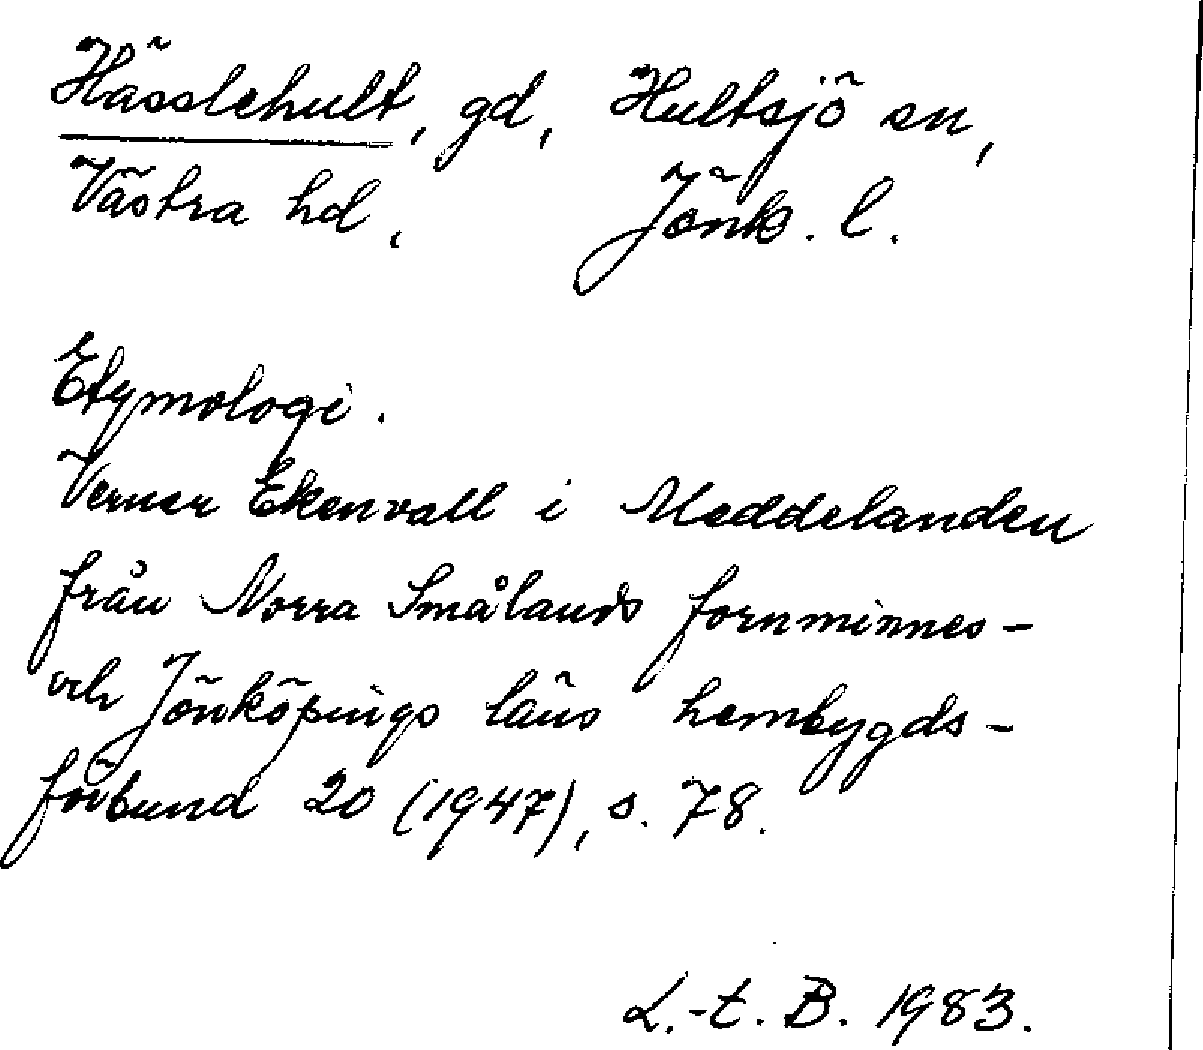 Hässlehult, gd, Hultsjö sn,
Västra hd, Jönk. l.
Etymologi.
Verner Ekenvall i Meddelanden
från Norra Smålands fornminnes-
och Jönköpings läns hembygds-
förbund 20 (1947), s. 78.
L.-t. B. 1983.